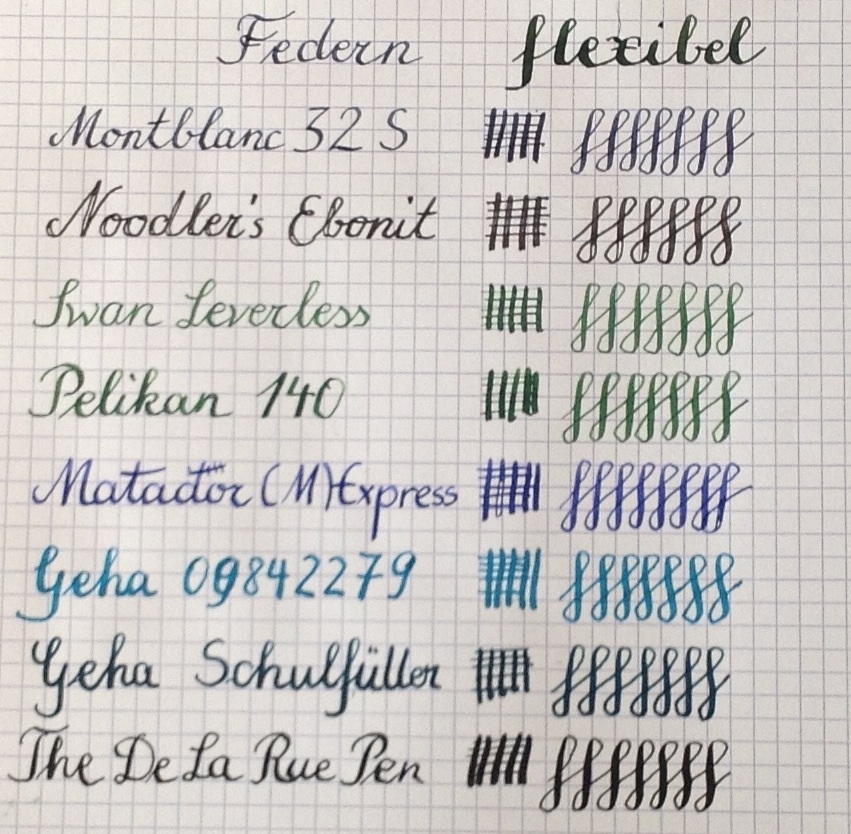 Federn flexibel
Montblanc 32 S
Noodler's Ebonit
Swan Leverless
Pelikan 140
Matador (M) Express
Geha 09842279
Geha Schulfüller
The De La Rue Pen